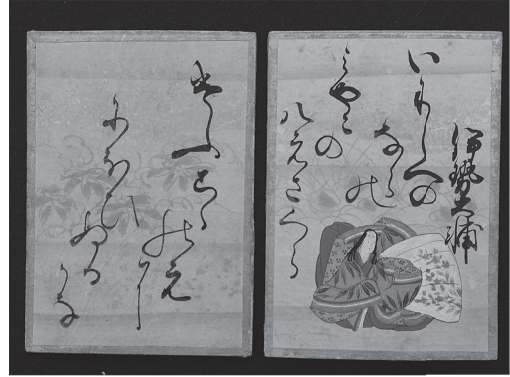 伊勢大輔
いにしへの
ならの
みやこの
八えさくら
けふこゝの
えに
にほひ
ぬる
かな